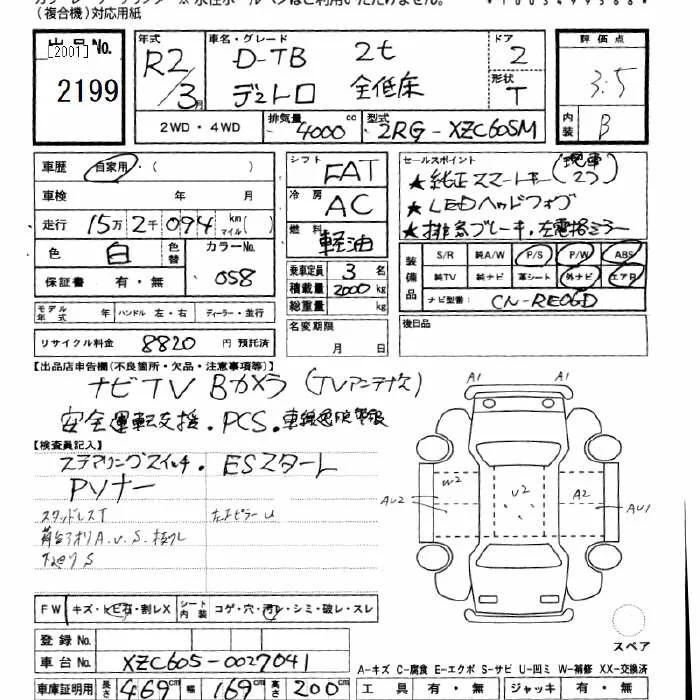 (複合機)対応用紙
出品No.
[2001]
2199
年式
R2/3月
車名・グレード
D-TB 2t
デュトロ 全低床
ドア
2
形状
T
評価点
3.5
内装
B
2WD・4WD
排気量
4000cc
型式
2RG-XZC605M
車歴 自家用・( )
車検 年 月
走行 15万2千094 km マイル
色 白 色替 カラーNo. 058
保証書 有・無
モデル年式 年 ハンドル 左・右 ディーラー・並行
リサイクル料金 8820 円 預託済
シフト FAT
冷房 AC
燃料 軽油
乗車定員 3名
積載量 2000kg
総重量 kg
名変期限
月 日
セールスポイント
★純正スマートキー(現車2つ)
★LEDヘッドフォグ
★排気ブレーキ,左電格ミラー
装備
S/R 純A/W P/S P/W ABS
純TV 純ナビ 革シート 外ナビ エアB
ナビ型番: CN-RE06D
後日品
【出品店申告欄(不良箇所・欠品・注意事項等)】
ナビTV Bカメラ (TVアンテナ欠)
安全運転支援・PCS・車線逸脱警報
【検査員記入】
ステアリングスイッチ・ ESスタート
Pソナー
スタッドレスT
荷台アオリA.U.S.
S
A1 A1
AU2 W2 U2 A2 AU1
スペア
FW キズ・トビ石・割レX シート内装 コゲ・穴・汚レ・シミ・破レ・スレ
登録No.
車台No. XZC605-0027041
車庫証明用 長さ 469cm 幅 169cm 高さ 200cm
A-キズ C-腐食 E-エクボ S-サビ U-凹ミ W-補修 XX-交換済
工具 有・無 ジャッキ 有・無